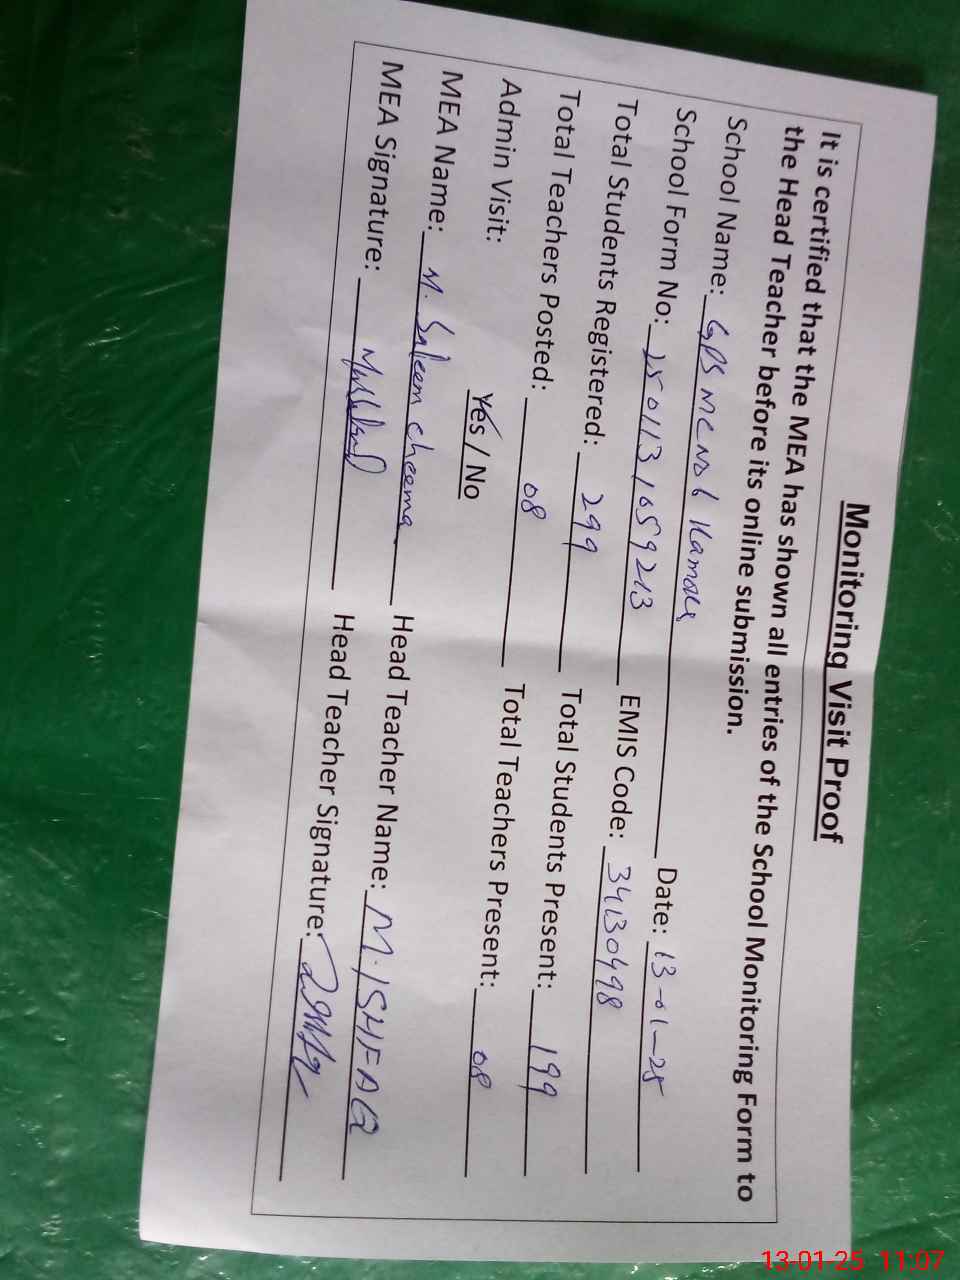 Monitoring Visit Proof
It is certified that the MEA has shown all entries of the School Monitoring Form to
the Head Teacher before its online submission.
School Name: GPS MC No 6 Kamoke Date: 13-01-25
School Form No: 2501131659213 EMIS Code: 34130498
Total Students Registered: 299 Total Students Present: 199
Total Teachers Posted: 08 Total Teachers Present: 08
Admin Visit: Yes / No
MEA Name: M. Saleem Cheema Head Teacher Name: M. ISHFAQ
MEA Signature: Head Teacher Signature:
13-01-25 11:07